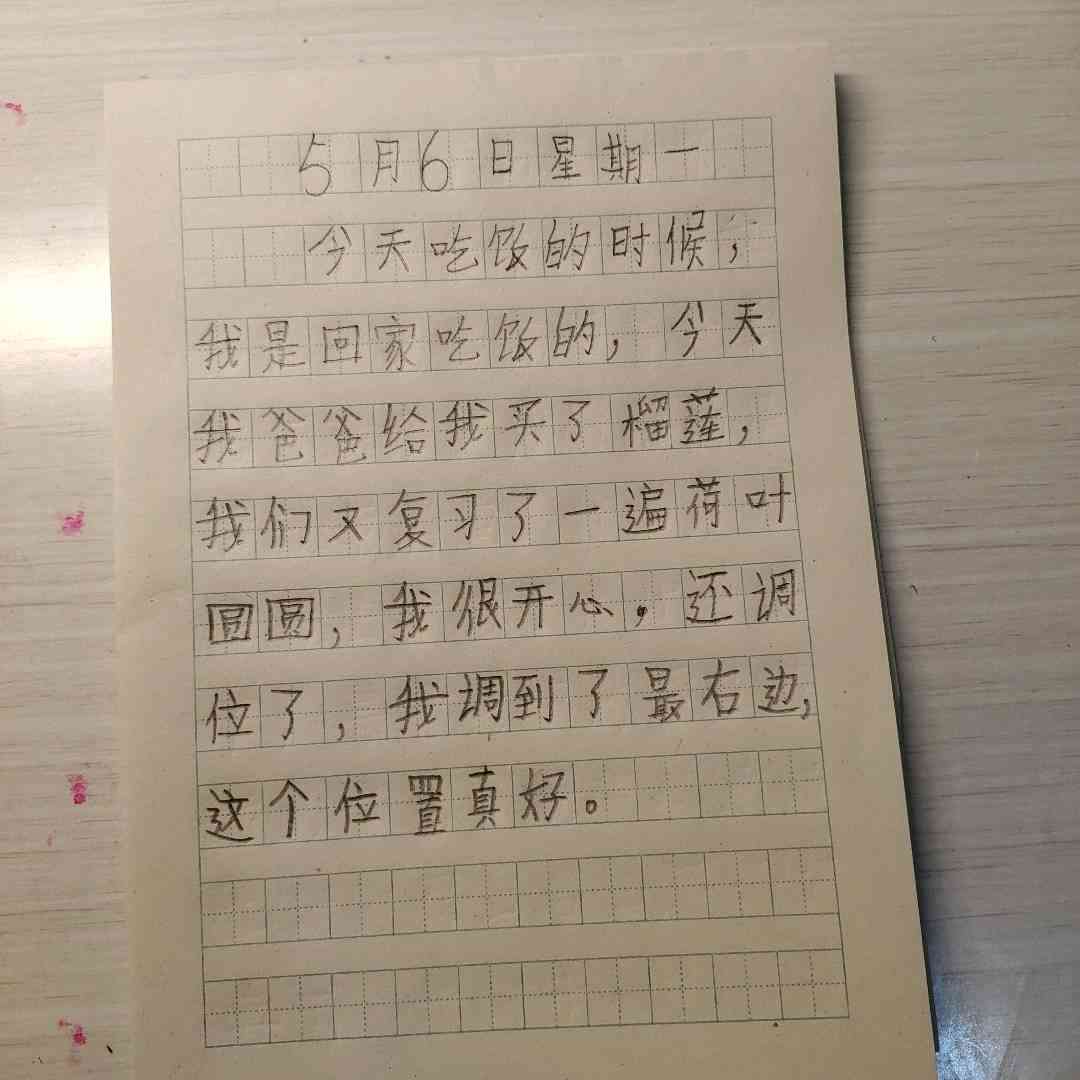 5月6日星期一
今天吃饭的时候，
我是回家吃饭的，今天
我爸爸给我买了榴莲，
我们又复习了一遍荷叶
圆圆，我很开心。还调
位了，我调到了最右边，
这个位置真好。